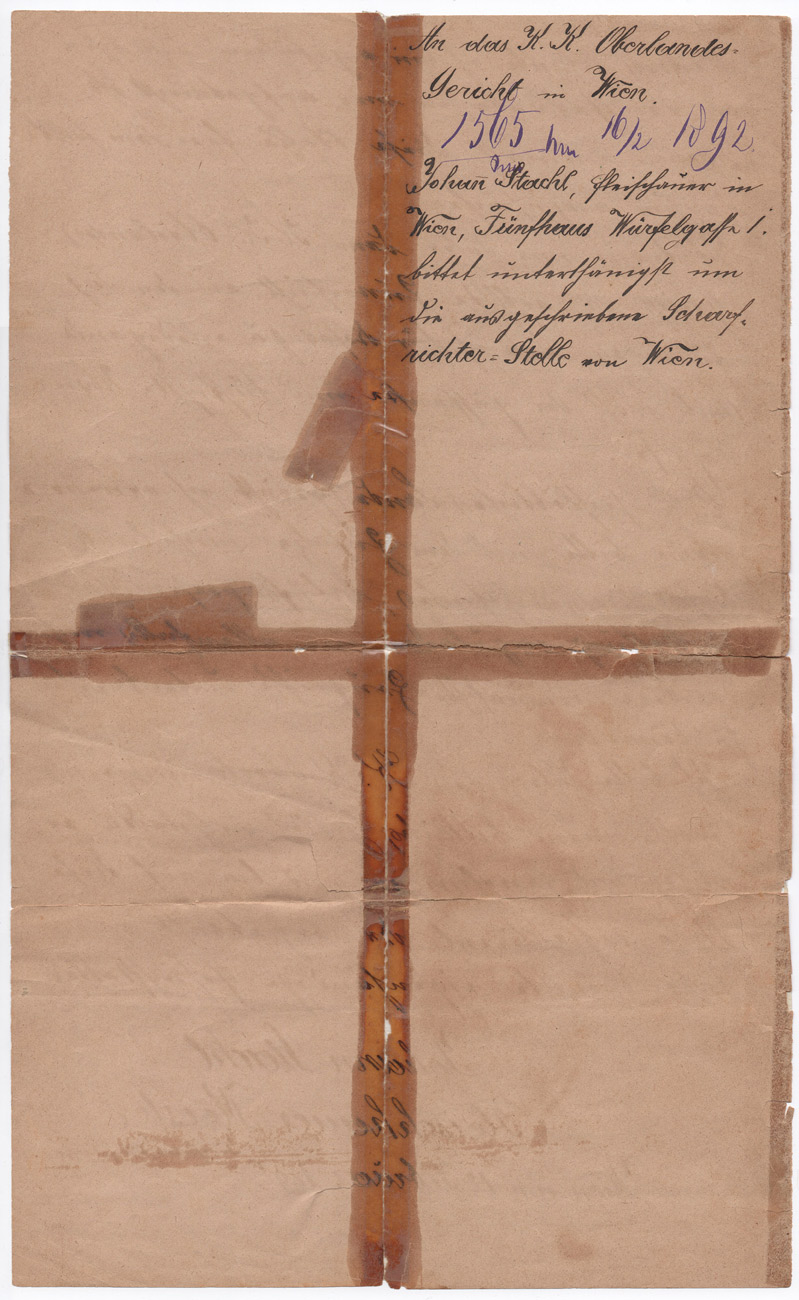 An das K. K. Oberlandes-
Gericht in Wien.
1565 16/2 1892.
Johann Stachl, Fleischauer in
Wien, Fünfhaus Würfelgasse 1.
bittet unterthänigst um
die ausgeschriebene Scharf-
richter=Stelle von Wien.